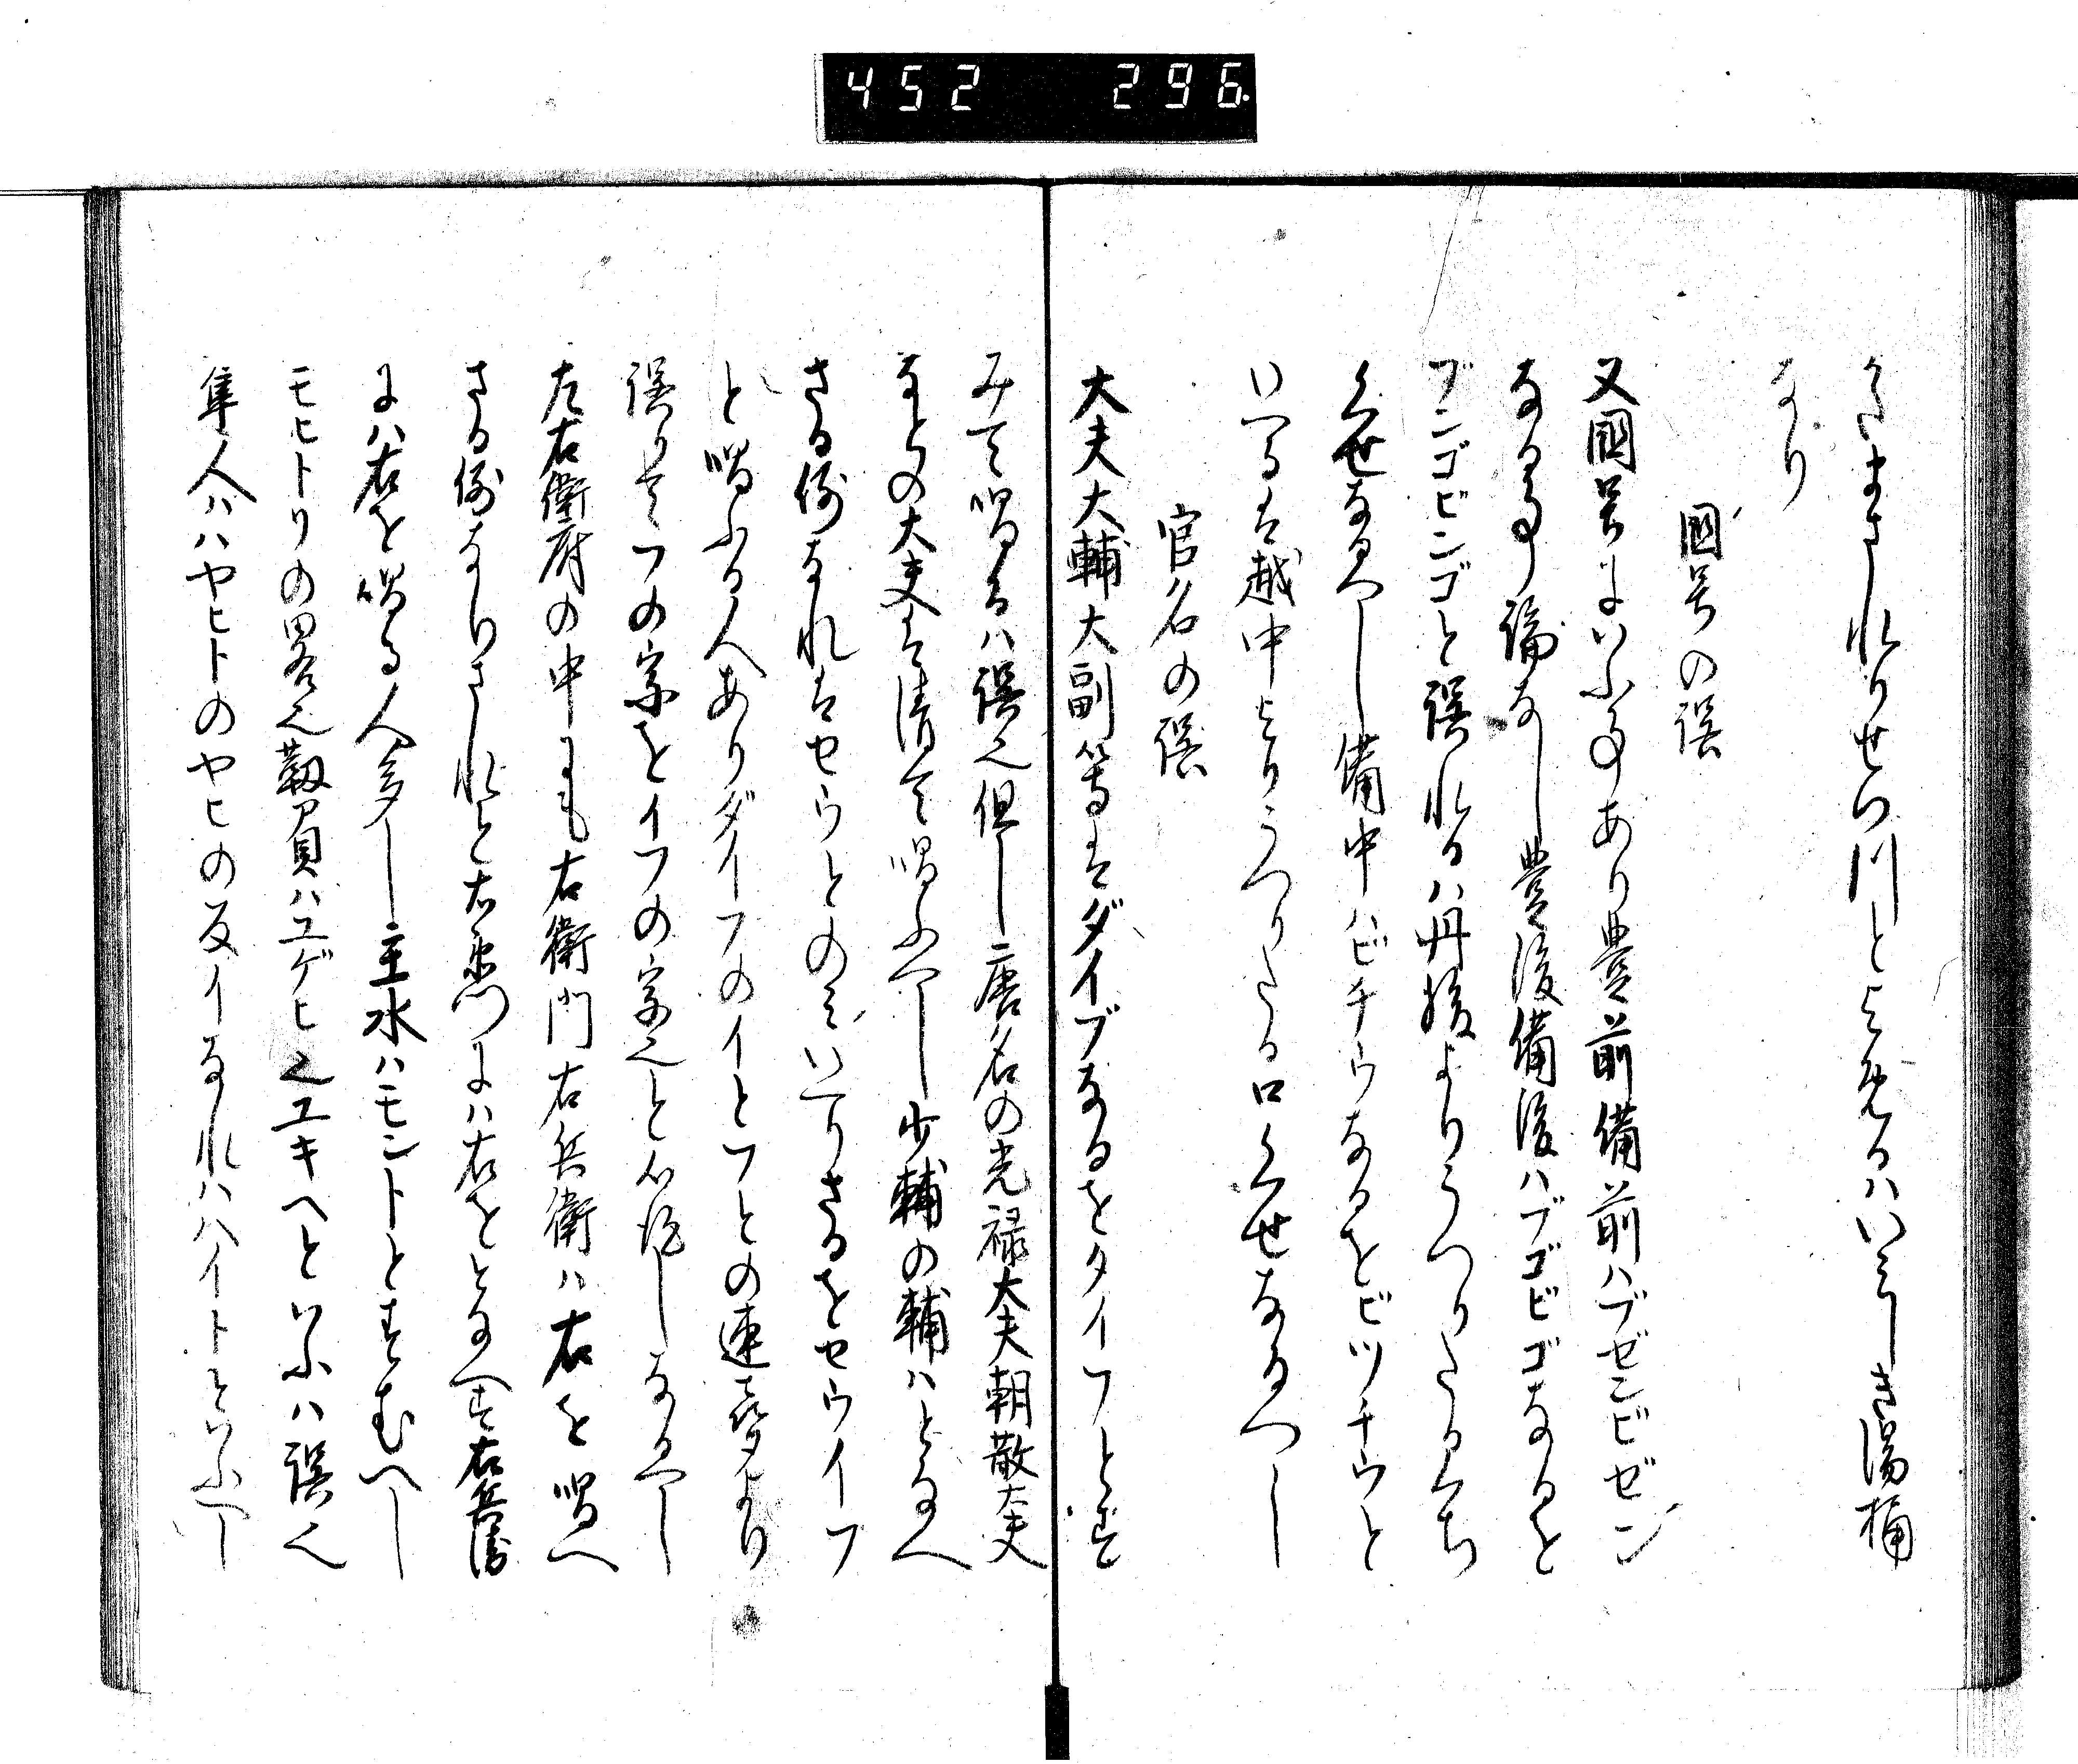 452 296
くさまされりせつ川とよめるはいみしき湯桶
なり
國号の誤
又國号にいふ事あり豊前備前ハブゼンビゼン
なる事論なし豊後備後ハブゴビゴなるを
ブンゴビンゴと誤れるハ丹後よりうつりたるくち
くせなるへし備中ハビチウなるをビツチウと
いへるは越中よりうつりたる口くせなるへし
官名の誤
大夫大輔大副等はダイブなるをタイフとす
みて唱るハ誤也但し唐名の光禄大夫朝散大夫
なとの大夫は清て唱ふへし少輔の輔ハとなへ
さる例なれはセウとのみいへりさるをセウイフ
と唱ふる人ありダイフのイとフとの連聲より
誤りてフの字をイフの字也と心得しなるへし
左右衛府の中にも右衛門右兵衛ハ右を唱へ
さる例なりされと左衛門にハ左をとなへす右兵衛
にハ右を唱る人多し主水ハモントとすむへし
モヒトリの畧也靱負ハユゲヒ也ユキヘといふハ誤也
隼人ハハヤヒトのヤヒの反イなれハハイトといふへし